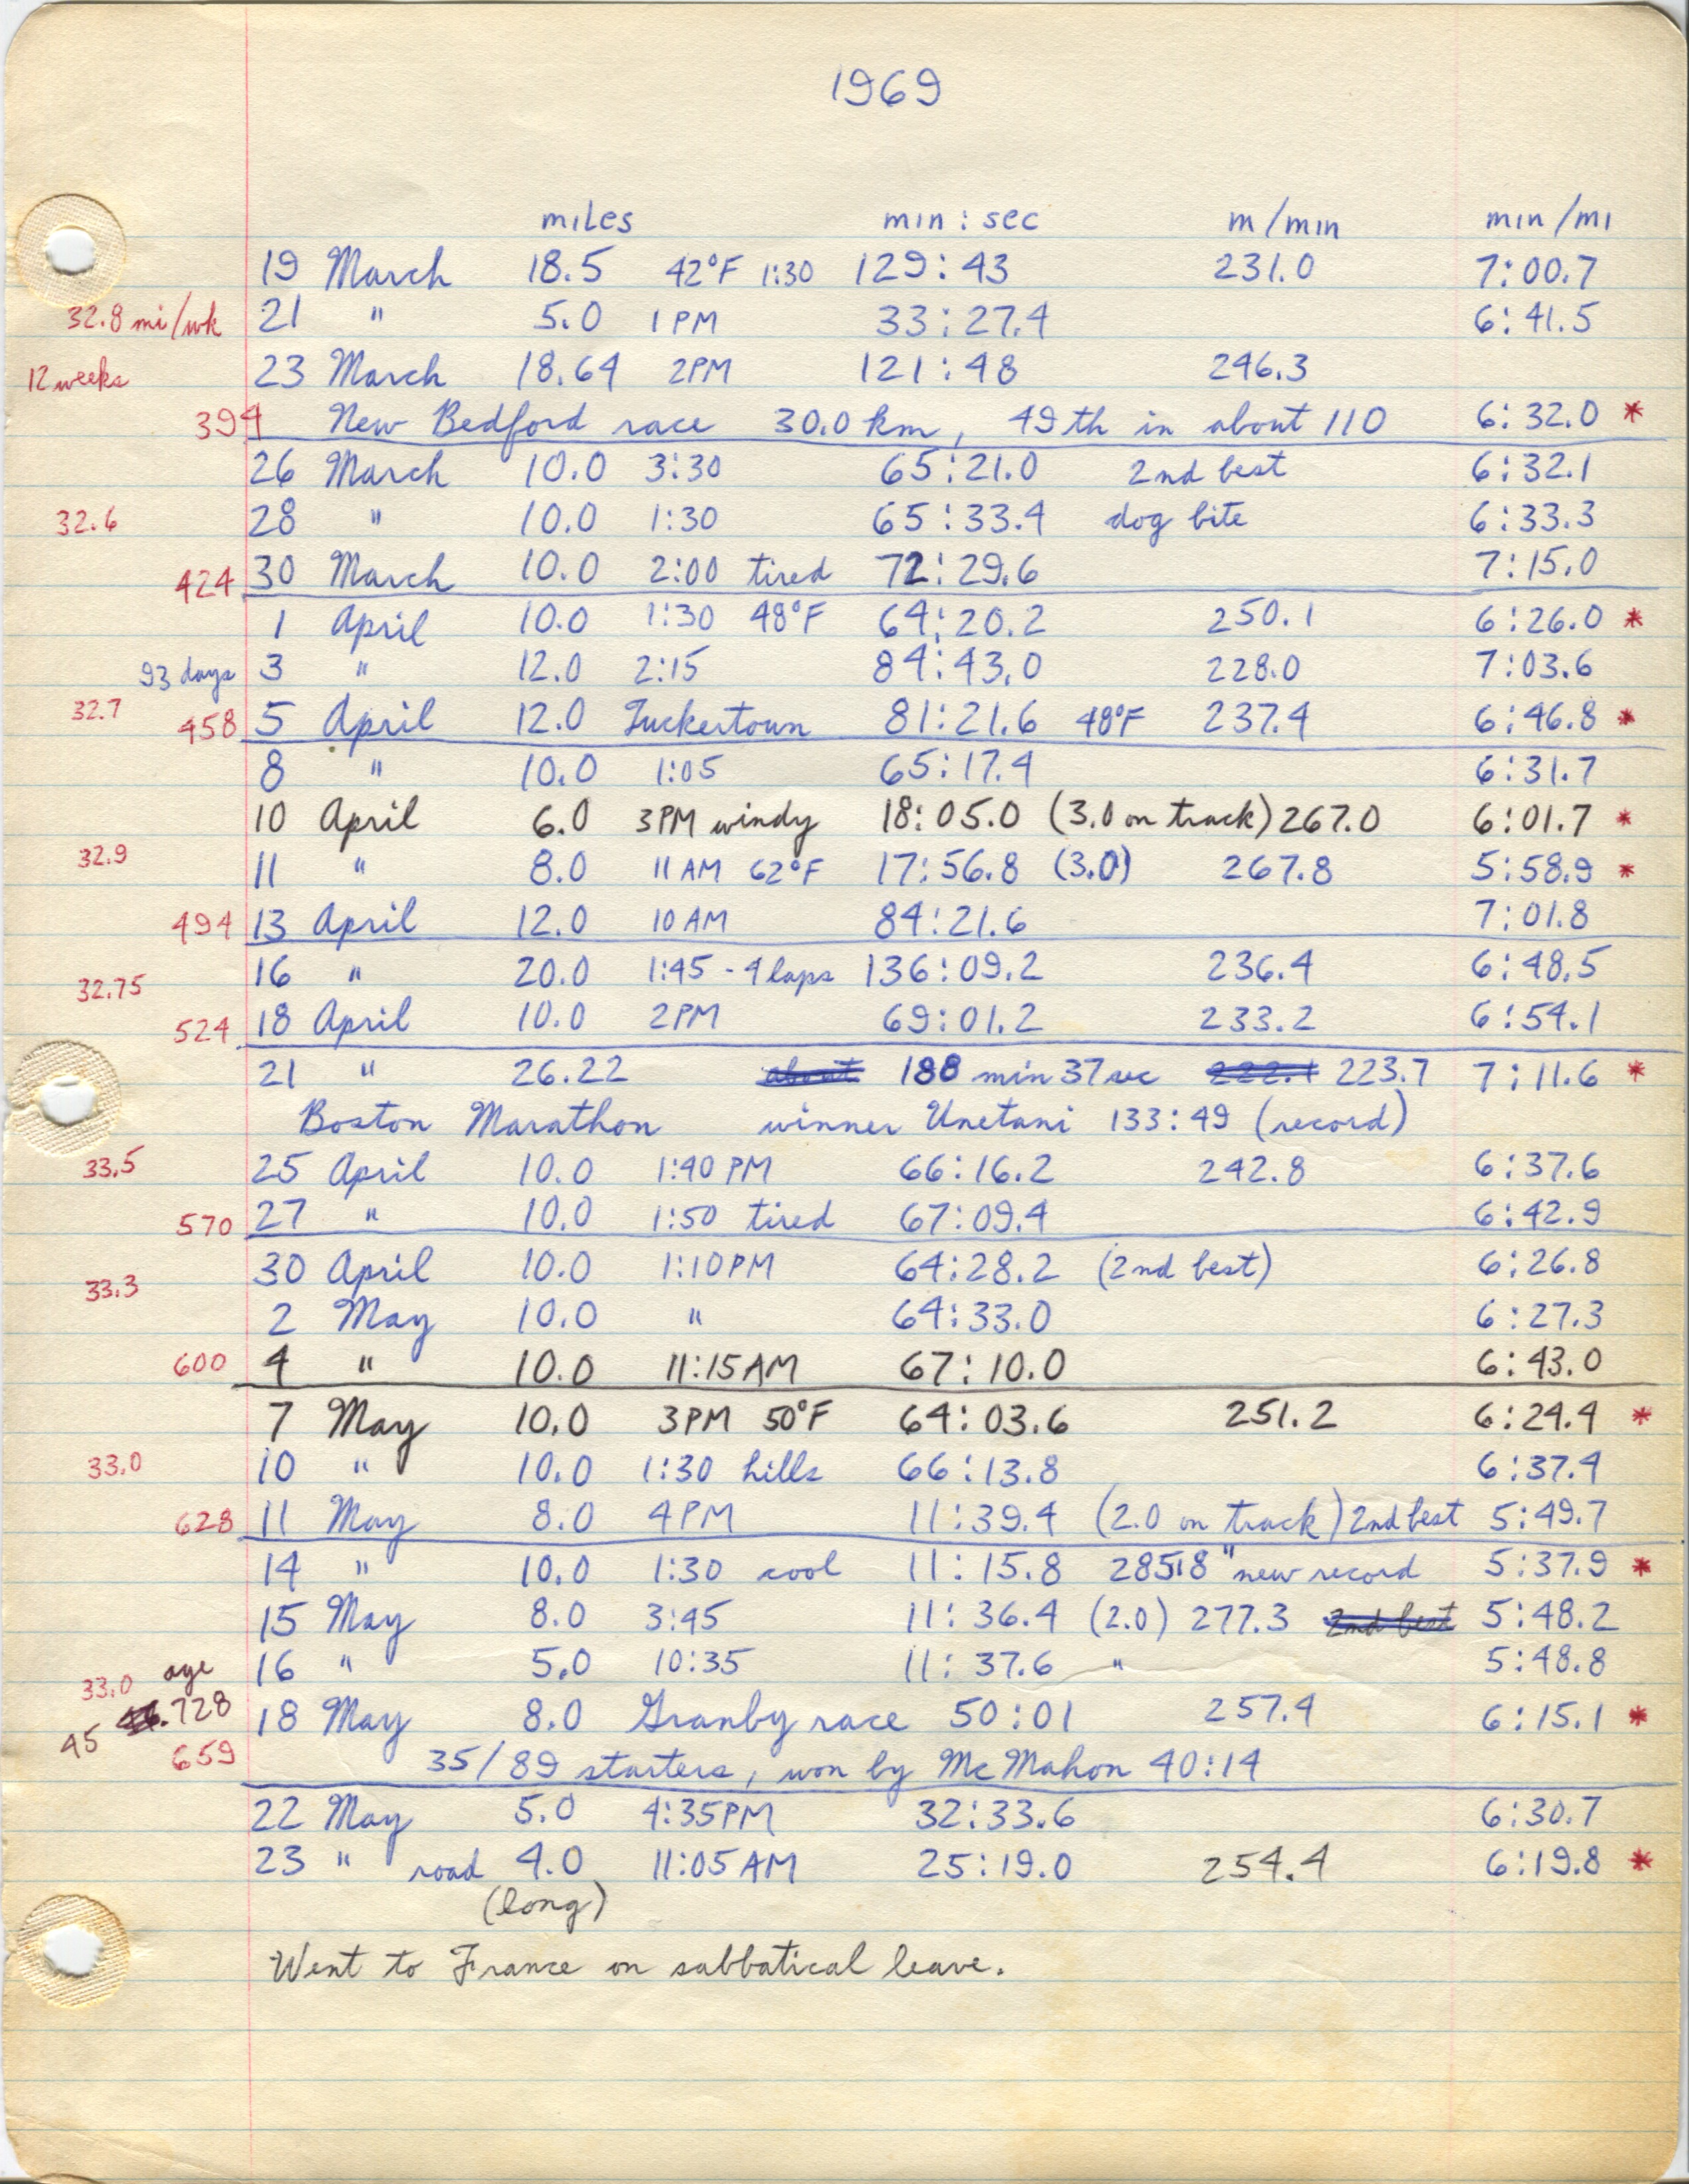 1969
miles min : sec m/min min/mi
19 March 18.5 42°F 1:30 129:43 231.0 7:00.7
32.8 mi/wk 21 " 5.0 1 PM 33:27.4 6:41.5
12 weeks 23 March 18.64 2PM 121:48 246.3
394 New Bedford race 30.0 km, 49th in about 110 6:32.0 *
26 March 10.0 3:30 65:21.0 2nd best 6:32.1
32.6 28 " 10.0 1:30 65:33.4 dog bite 6:33.3
424 30 March 10.0 2:00 tired 72:29.6 7:15.0
1 April 10.0 1:30 48°F 64:20.2 250.1 6:26.0 *
93 days 3 " 12.0 2:15 84:43.0 228.0 7:03.6
32.7 458 5 April 12.0 Tuckertown 81:21.6 48°F 237.4 6:46.8 *
8 " 10.0 1:05 65:17.4 6:31.7
10 April 6.0 3PM windy 18:05.0 (3.0 on track) 267.0 6:01.7 *
32.9 11 " 8.0 11 AM 62°F 17:56.8 (3.0) 267.8 5:58.9 *
494 13 April 12.0 10 AM 84:21.6 7:01.8
32.75 16 " 20.0 1:45 - 4 laps 136:09.2 236.4 6:48.5
524 18 April 10.0 2PM 69:01.2 233.2 6:54.1
21 " 26.22 about 188 min 37 sec 222.1 223.7 7:11.6 *
Boston Marathon winner Unetani 133:49 (record)
33.5 25 April 10.0 1:40 PM 66:16.2 242.8 6:37.6
570 27 " 10.0 1:50 tired 67:09.4 6:42.9
33.3 30 April 10.0 1:10PM 64:28.2 (2nd best) 6:26.8
2 May 10.0 " 64:33.0 6:27.3
600 4 " 10.0 11:15AM 67:10.0 6:43.0
7 May 10.0 3PM 50°F 64:03.6 251.2 6:24.4 *
33.0 10 " 10.0 1:30 hills 66:13.8 6:37.4
628 11 May 8.0 4PM 11:39.4 (2.0 on track) 2nd best 5:49.7
14 " 10.0 1:30 cool 11:15.8 285.8 " new record 5:37.9 *
15 May 8.0 3:45 11:36.4 (2.0) 277.3 2nd best 5:48.2
33.0 age 16 " 5.0 10:35 11:37.6 " 5:48.8
45 .728 18 May 8.0 Granby race 50:01 257.4 6:15.1 *
659 35/89 starters, won by McMahon 40:14
22 May 5.0 4:35PM 32:33.6 6:30.7
23 " road 4.0 11:05AM 25:19.0 254.4 6:19.8 *
(long)
Went to France on sabbatical leave.